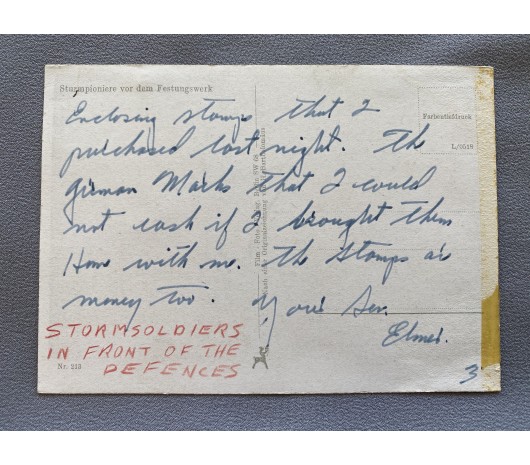 Sturmpioniere vor dem Festungswerk
Enclosing stamps that I
purchased last night. The
german Marks that I could
not cash if I brought them
Home with me. The Stamps are
money too. Your Son.
Elmer.
3
STORMSOLDIERS
IN FRONT OF THE
DEFENCES
Nr. 213
Farbentiefdruck
L/0518
Film-Foto-Verlag, Berlin SW 68